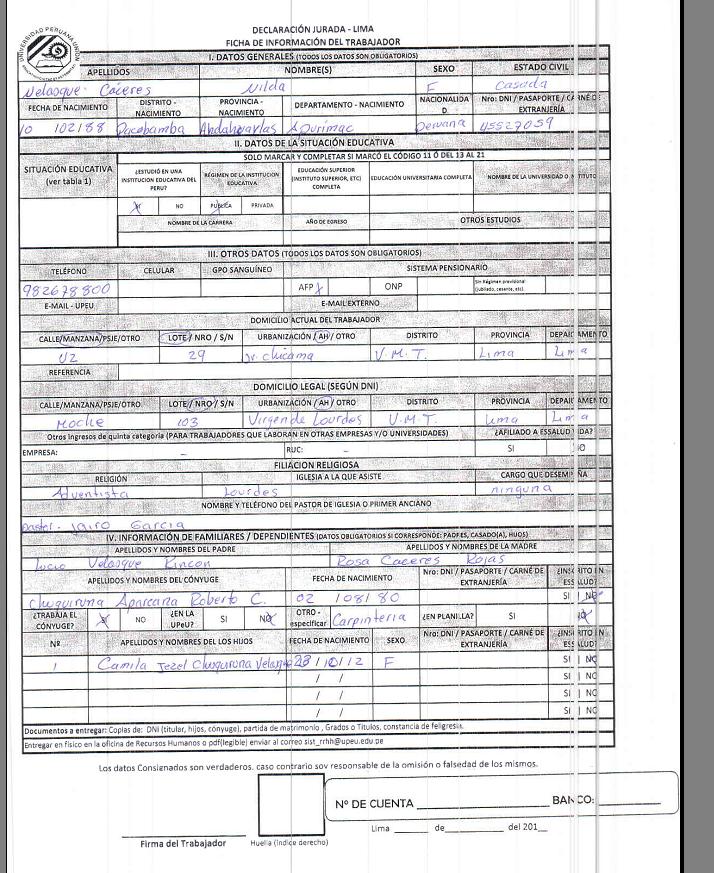 UNIVERSIDAD PERUANA UNION
DECLARACIÓN JURADA - LIMA
FICHA DE INFORMACIÓN DEL TRABAJADOR
I. DATOS GENERALES (TODOS LOS DATOS SON OBLIGATORIOS)
APELLIDOS NOMBRE(S) SEXO ESTADO CIVIL
Velasque Cáceres Nilda F Casada
FECHA DE NACIMIENTO DISTRITO - NACIMIENTO PROVINCIA - NACIMIENTO DEPARTAMENTO - NACIMIENTO NACIONALIDAD Nro: DNI / PASAPORTE / CARNÉ DE EXTRANJERÍA
10 02 88 Pacobamba Andahuaylas Apurímac peruana 45527059
II. DATOS DE LA SITUACIÓN EDUCATIVA
SOLO MARCAR Y COMPLETAR SI MARCÓ EL CÓDIGO 11 Ó DEL 13 AL 21
SITUACIÓN EDUCATIVA (ver tabla 1) ¿ESTUDIÓ EN UNA INSTITUCION EDUCATIVA DEL PERU? RÉGIMEN DE LA INSTITUCION EDUCATIVA EDUCACIÓN SUPERIOR (INSTITUTO SUPERIOR, ETC) COMPLETA EDUCACIÓN UNIVERSITARIA COMPLETA NOMBRE DE LA UNIVERSIDAD O INSTITUTO
X NO PUBLICA PRIVADA
NOMBRE DE LA CARRERA AÑO DE EGRESO OTROS ESTUDIOS
III. OTROS DATOS (TODOS LOS DATOS SON OBLIGATORIOS)
TELÉFONO CELULAR GPO SANGUÍNEO SISTEMA PENSIONARIO
982678800 AFP X ONP Sin Régimen previsional (jubilado, cesante, etc).
E-MAIL - UPEU E-MAIL EXTERNO
DOMICILIO ACTUAL DEL TRABAJADOR
CALLE/MANZANA/PSJE/OTRO LOTE / NRO / S/N URBANIZACIÓN / AH / OTRO DISTRITO PROVINCIA DEPARTAMENTO
U2 29 Jr. chicama V.M.T. Lima Lima
REFERENCIA
DOMICILIO LEGAL (SEGÚN DNI)
CALLE/MANZANA/PSJE/OTRO LOTE / NRO / S/N URBANIZACIÓN / AH / OTRO DISTRITO PROVINCIA DEPARTAMENTO
Moche 103 Virgen de Lourdes V.M.T Lima Lima
Otros ingresos de quinta categoria (PARA TRABAJADORES QUE LABORAN EN OTRAS EMPRESAS Y/O UNIVERSIDADES) ¿AFILIADO A ESSALUD VIDA?
EMPRESA: - RUC: - SI NO
FILIACION RELIGIOSA
RELIGIÓN IGLESIA A LA QUE ASISTE CARGO QUE DESEMPEÑA
Adventista Lourdes ninguna
NOMBRE Y TELÉFONO DEL PASTOR DE IGLESIA O PRIMER ANCIANO
Pastor - Jairo Garcia
IV. INFORMACIÓN DE FAMILIARES / DEPENDIENTES (DATOS OBLIGATORIOS SI CORRESPONDE: PADRES, CASADO(A), HIJOS)
APELLIDOS Y NOMBRES DEL PADRE APELLIDOS Y NOMBRES DE LA MADRE
Lucio Velasque Rincon Rosa Caceres Rojas
APELLIDOS Y NOMBRES DEL CÓNYUGE FECHA DE NACIMIENTO Nro: DNI / PASAPORTE / CARNÉ DE EXTRANJERÍA ¿INSCRITO EN ESSALUD?
Chuquiruna Aparcana Roberto C. 02 08 80 SI NO
¿TRABAJA EL CÓNYUGE? X NO ¿EN LA UPeU? SI NO OTRO - especificar Carpinteria ¿EN PLANILLA? SI NO
Nº APELLIDOS Y NOMBRES DE LOS HIJOS FECHA DE NACIMIENTO SEXO Nro: DNI / PASAPORTE / CARNÉ DE EXTRANJERÍA ¿INSCRITO EN ESSALUD?
1 Camila Jezel Chuquiruna Velasque 23/10/12 F SI NO
/ / SI NO
/ / SI NO
/ / SI NO
Documentos a entregar: Copias de: DNI (titular, hijos, cónyuge), partida de matrimonio , Grados o Titulos, constancia de feligresia.
Entregar en físico en la oficina de Recursos Humanos o pdf(legible) enviar al correo sist_rrhh@upeu.edu.pe
Los datos Consignados son verdaderos, caso contrario soy responsable de la omisión o falsedad de los mismos.
Nº DE CUENTA BANCO:
Lima de del 201
Firma del Trabajador Huella (índice derecho)